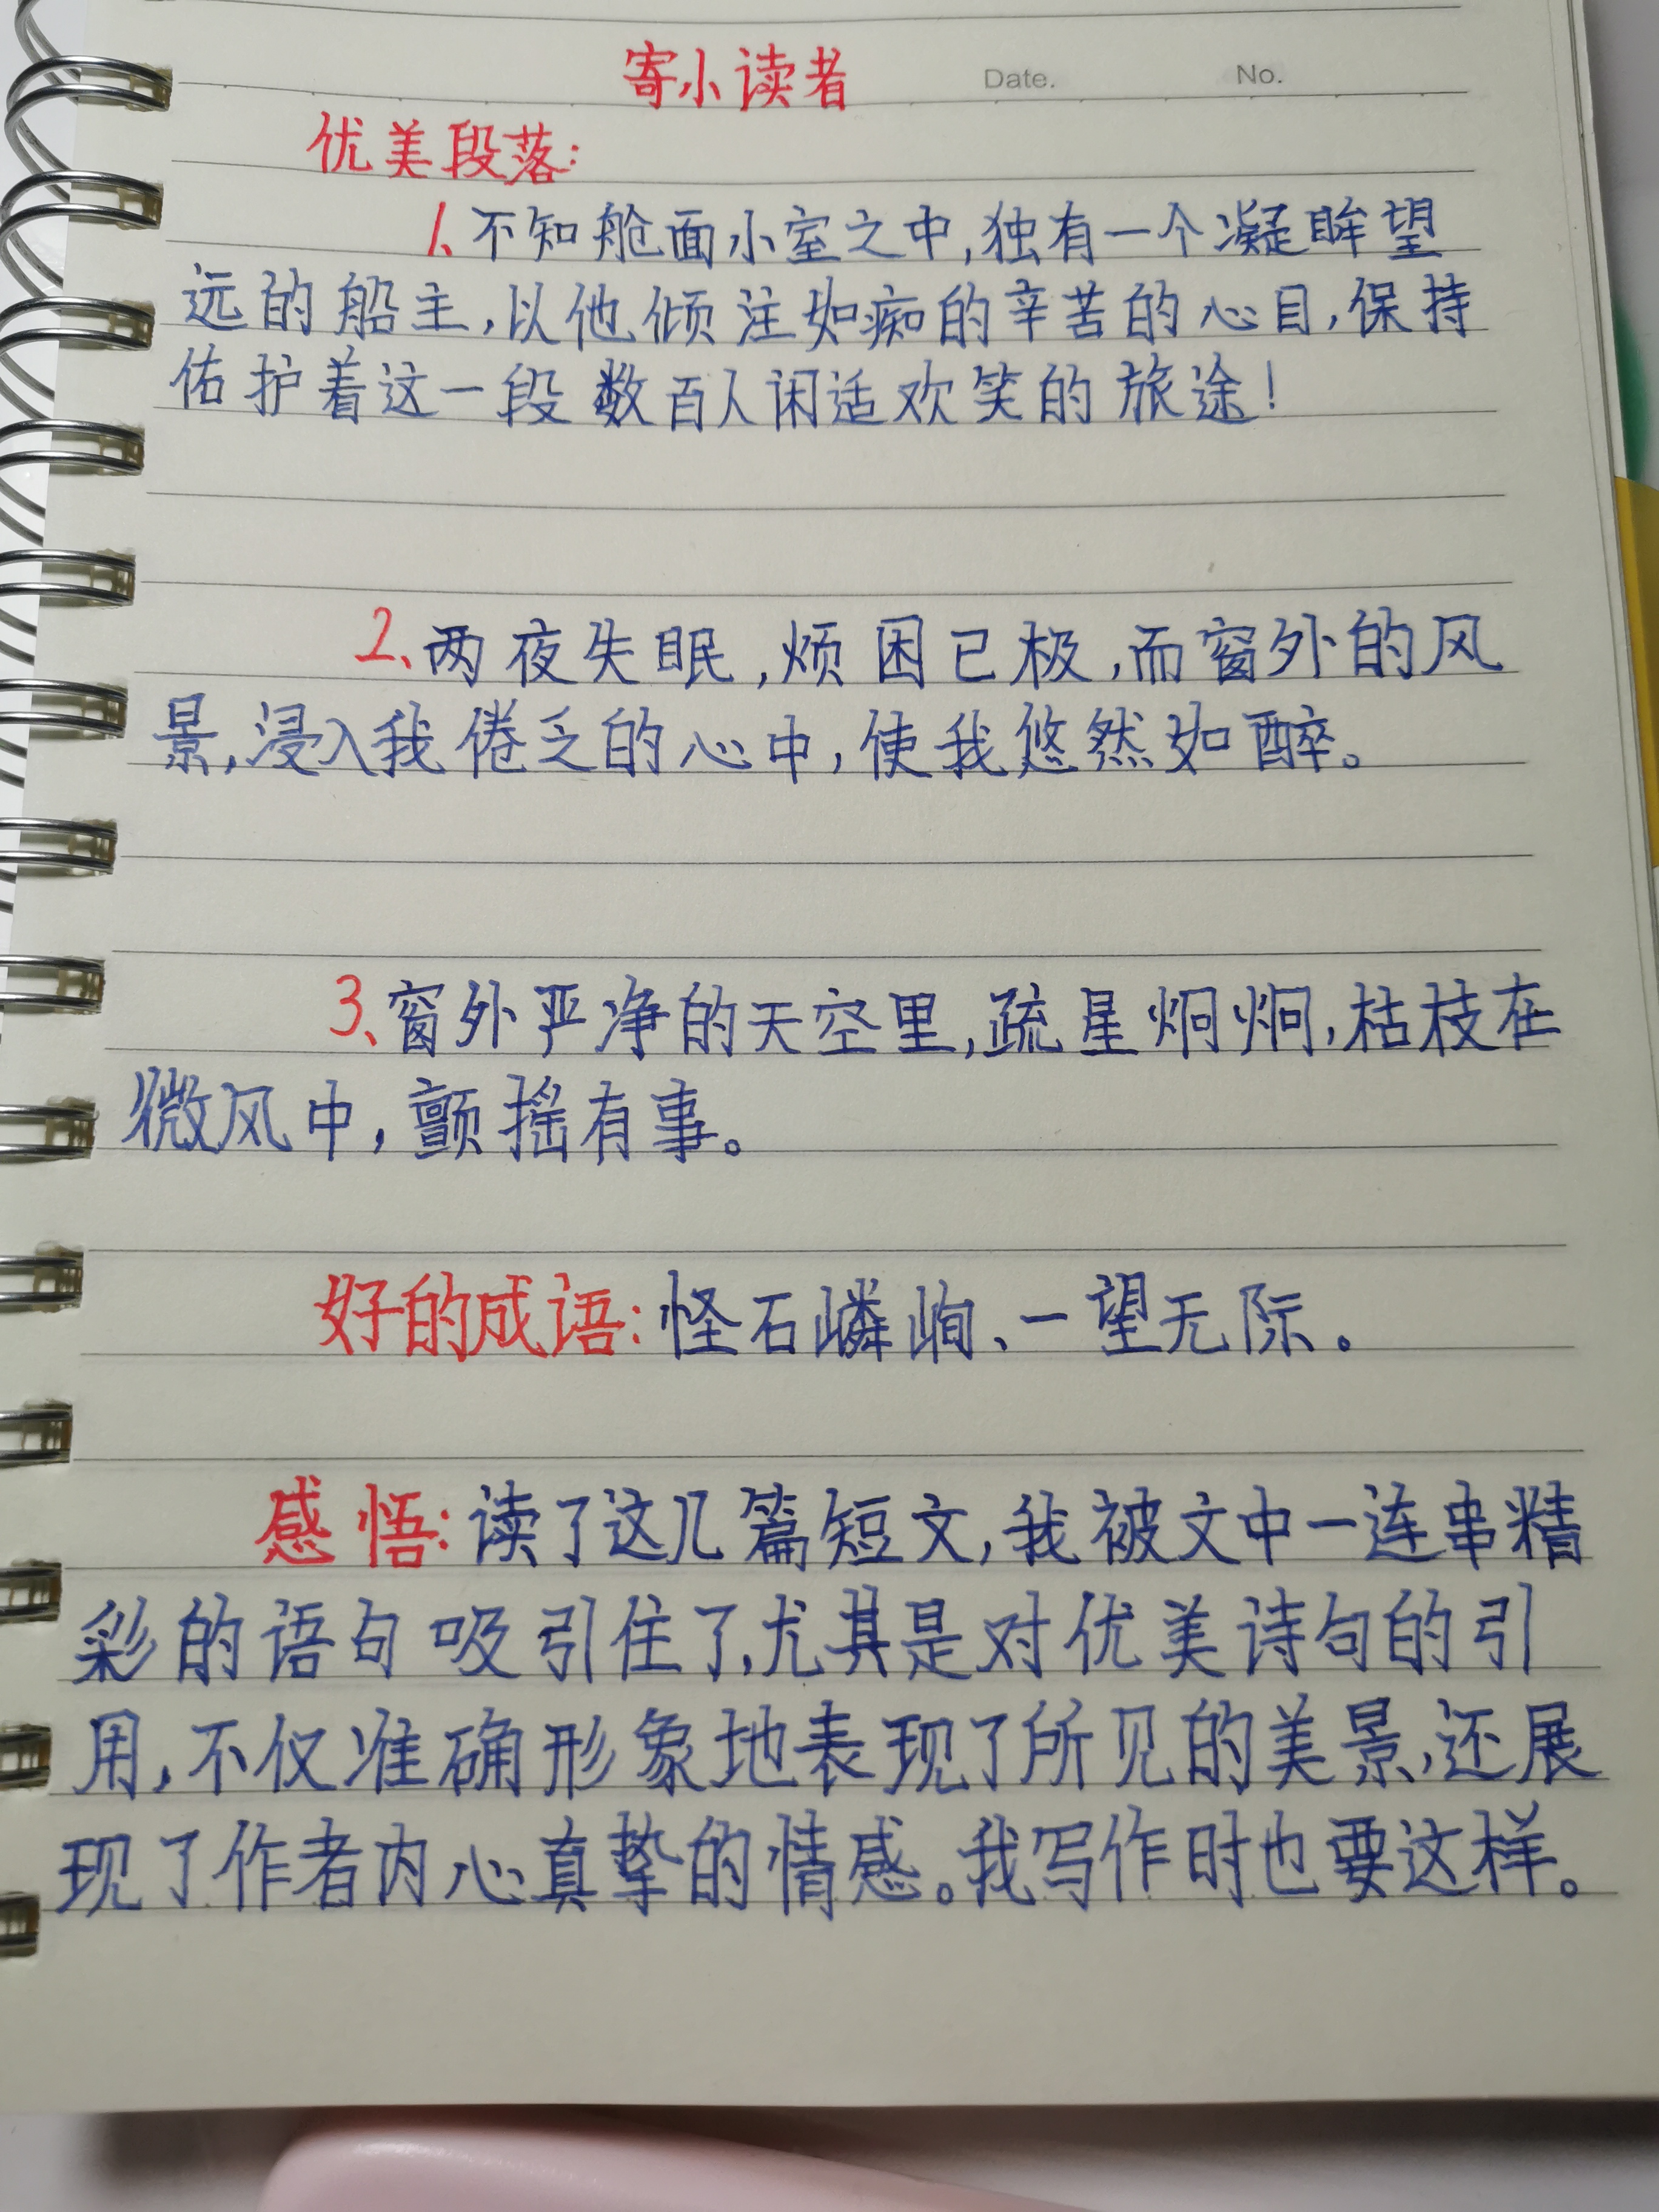 寄小读者 Date. No.
优美段落:
1、不知舱面小室之中,独有一个凝眸望
远的船主,以他倾注如痴的辛苦的心目,保持
佑护着这一段数百人闲适欢笑的旅途!
2、两夜失眠,烦困已极,而窗外的风
景,浸入我倦乏的心中,使我悠然如醉。
3、窗外严净的天空里,疏星炯炯,枯枝在
微风中,颤摇有事。
好的成语:怪石嶙峋、一望无际。
感悟:读了这几篇短文,我被文中一连串精
彩的语句吸引住了,尤其是对优美诗句的引
用,不仅准确形象地表现了所见的美景,还展
现了作者内心真挚的情感。我写作时也要这样。